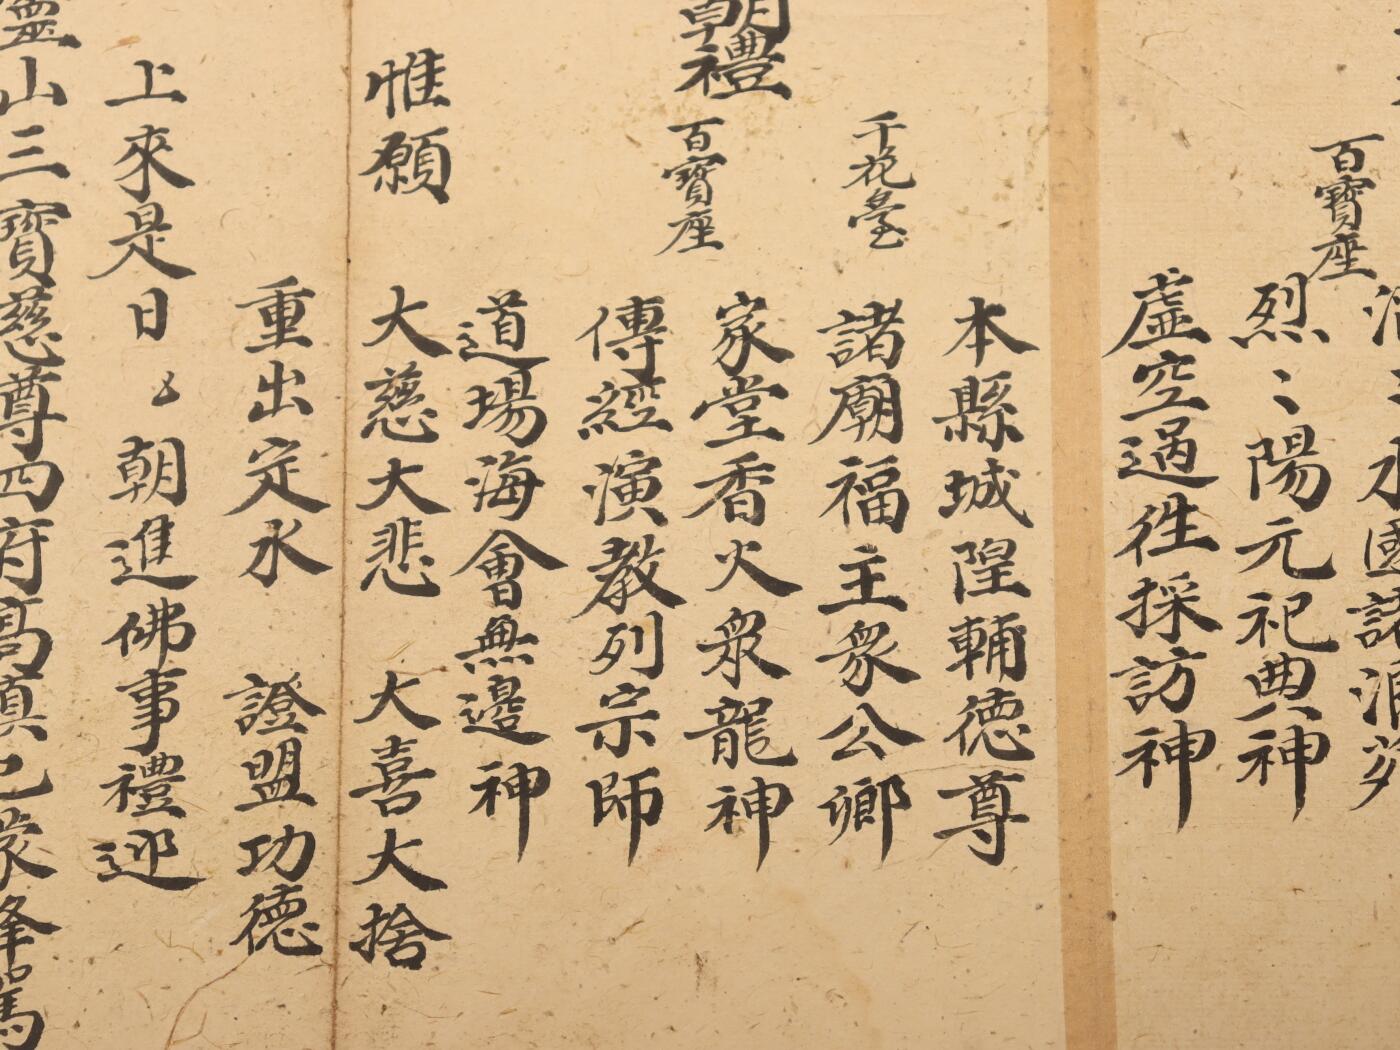 水國諸浪
烈〻陽元祀典神
百寶座
虛空過徃採訪神
本縣城隍輔德尊
千花臺
諸廟福主衆公卿
朝禮
家堂香火衆龍神
百寶座
傳經演教列宗師
道場海會無邊神
惟願
大慈大悲 大喜大捨
重出定水 證盟功德
上來是日 朝進佛事禮迎
靈山三寶慈尊四府高真已蒙降駕